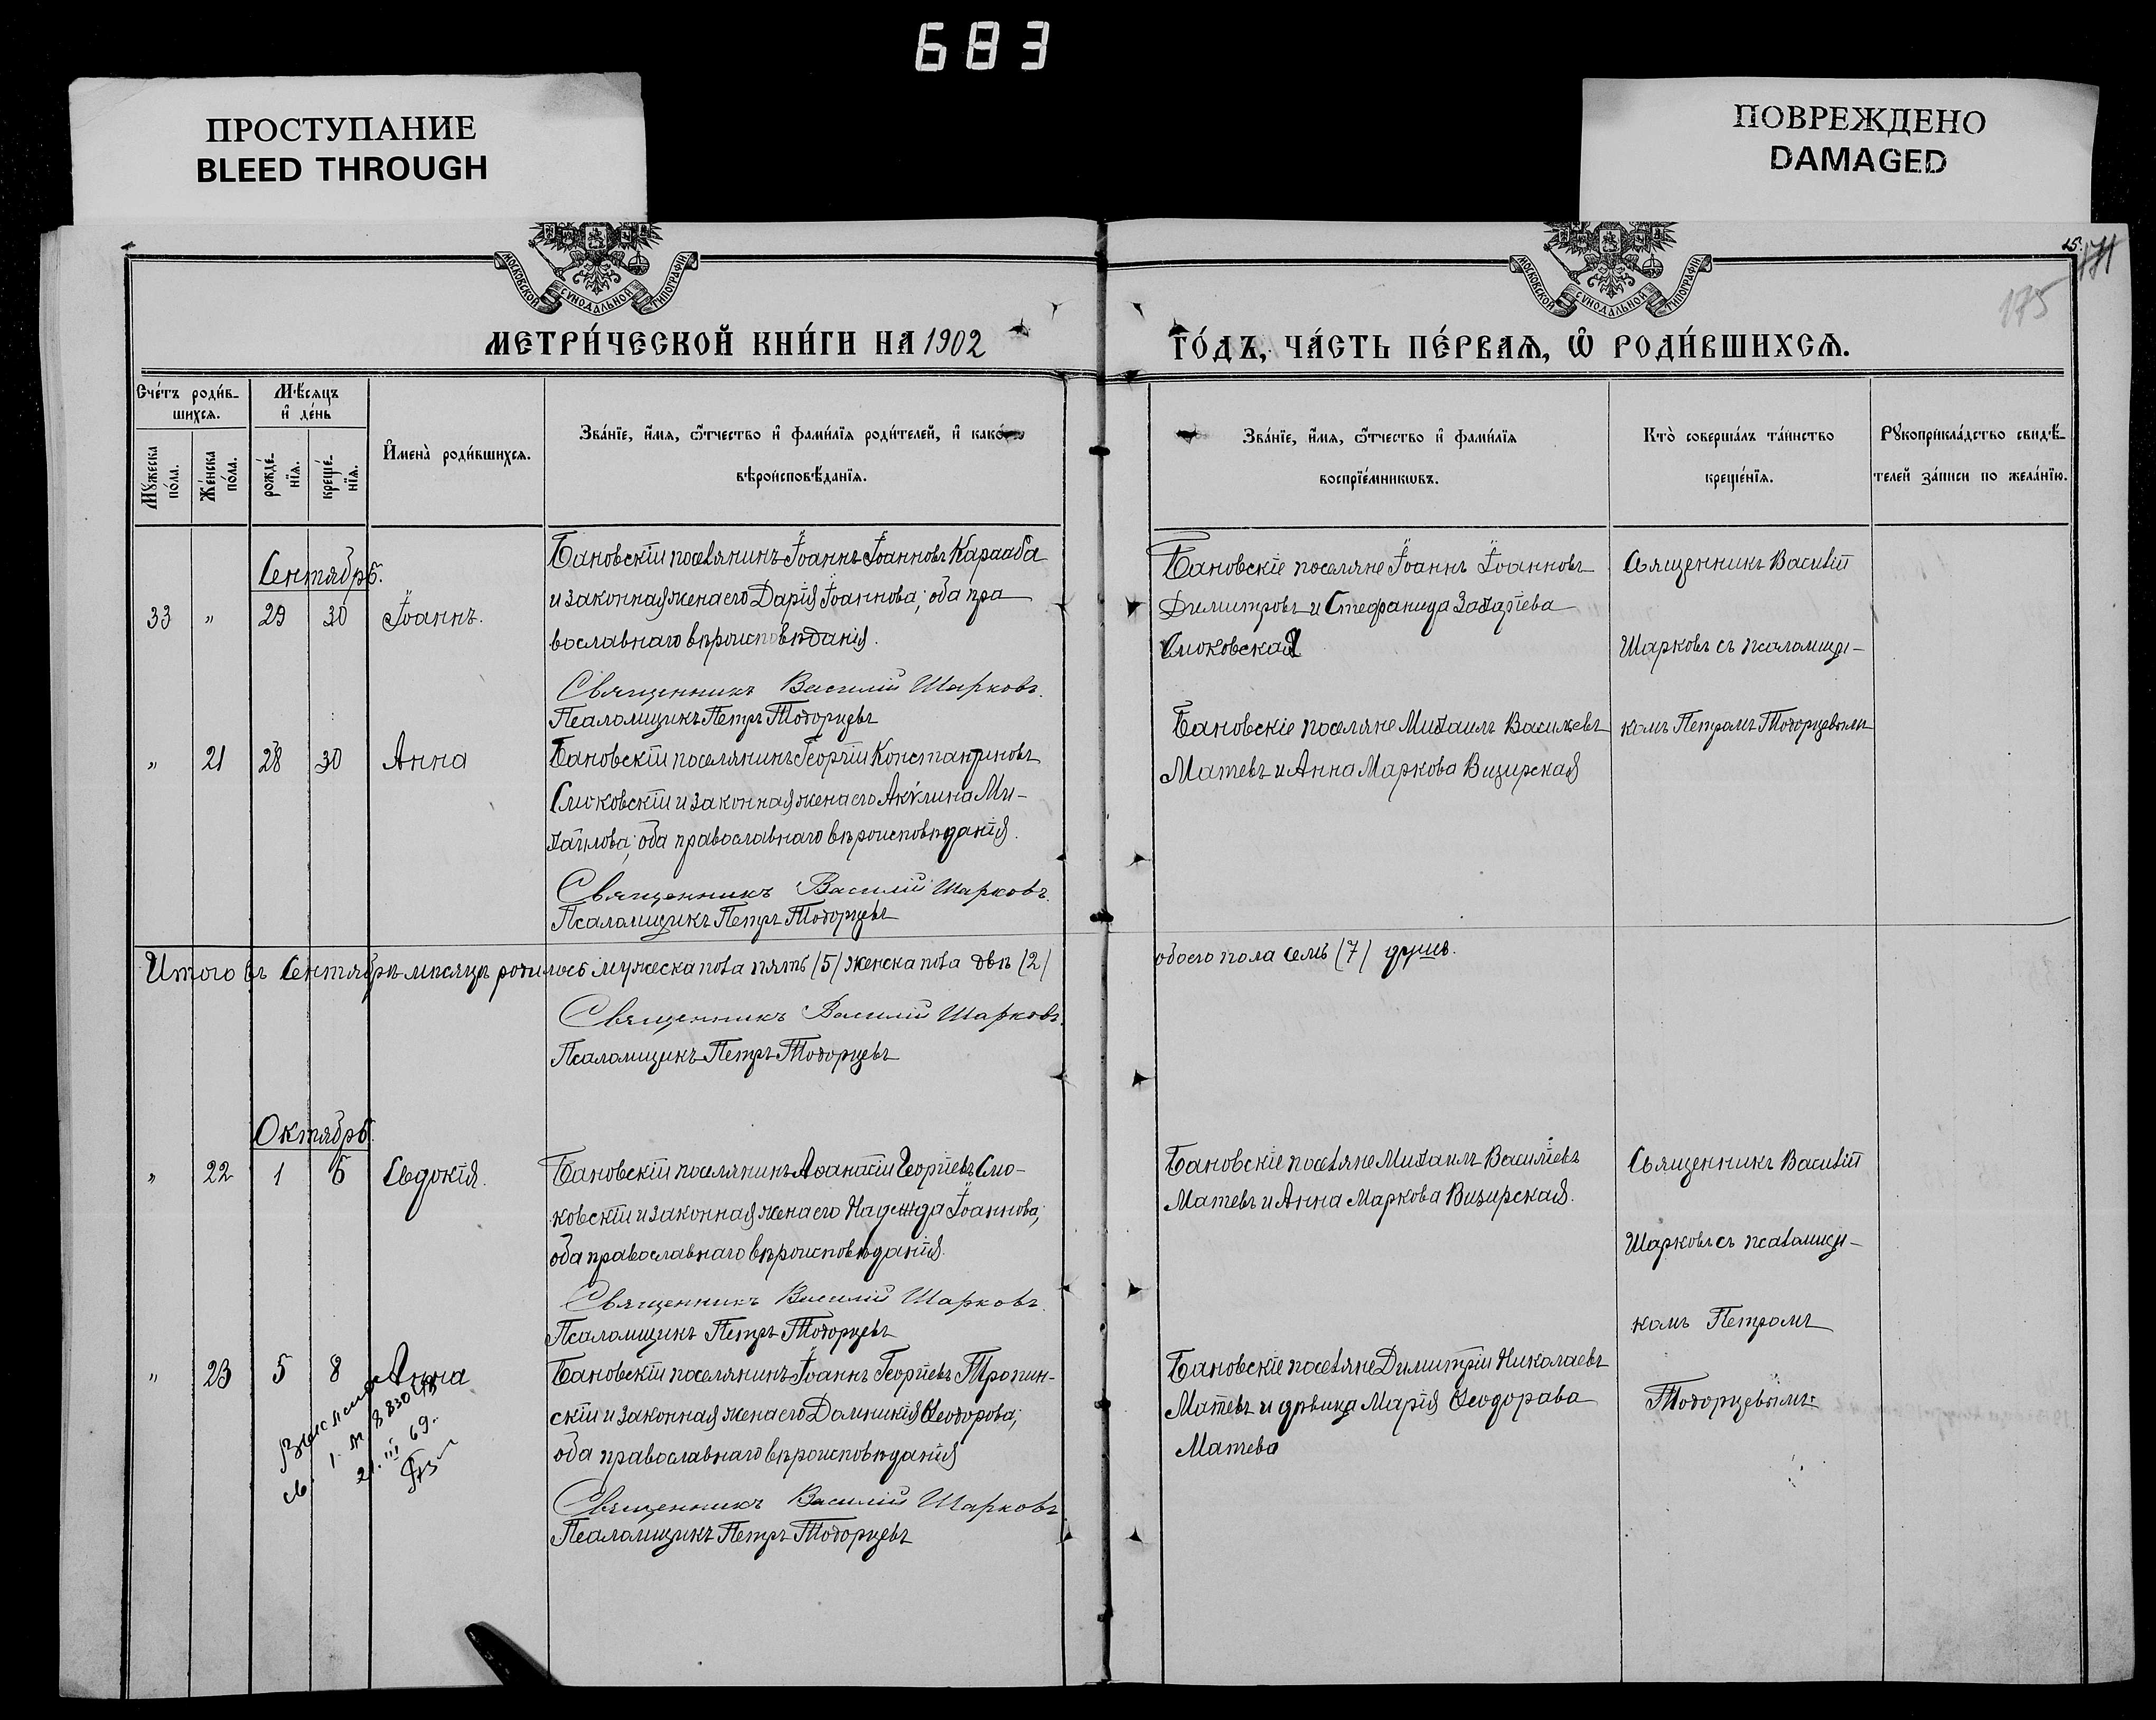 683
ПРОСТУПАНИЕ
BLEED THROUGH
ПОВРЕЖДЕНО
DAMAGED
МОСКОВСКОЙ СѴНОДАЛЬНОЙ ТИПОГРАФІИ
МОСКОВСКОЙ СѴНОДАЛЬНОЙ ТИПОГРАФІИ
15.
171
175
МЕТРИ́ЧЕСКОЙ КНИ́ГИ НА 1902
ГО́ДЪ, ЧА́СТЬ ПЕ́РВАѦ, Ѡ҆ РОДИ́ВШИХСѦ.
Сче́тъ роди́в-
шихсѧ.
Мѣ́сѧцъ
и҆ де́нь
Мꙋ́жеска
по́ла.
Же́нска
по́ла.
рожде́-
нїѧ.
креще́-
нїѧ.
И҆мена̀ роди́вшихсѧ.
Зва́нїе, и҆́мѧ, ѻ҆́тчество и҆ фами́лїѧ роди́телей, и҆
вѣроисповѣ́данїѧ.
Зва́нїе, и҆́мѧ, ѻ҆́тчество и҆ фами́лїѧ
воспрїе́мникѡвъ.
Кто̀ соверша́лъ та́инство
креще́нїѧ.
Рꙋкоприкла́дство свидѣ́-
телей за́писи по жела́нїю.
Сентябрь.
33 " 29 30 Іоаннъ.
Бановскій поселянинъ Іоаннъ Іоанновъ Карааба
и законная жена его Дарія Іоаннова; оба пра
вославнаго вѣроисповѣданія.
Священникъ Василій Шарковъ.
Псаломщикъ Петръ Тодорцевъ
Бановскіе поселяне Іоаннъ Іоанновъ
Димитровъ и Стефанида Захаріева
Смоковская
Священникъ Василій
Шарковъ съ псаломщи-
комъ Петромъ Тодорцевымъ
" 21 28 30 Анна
Бановскій поселянинъ Георгій Константиновъ
Смоковскій и законная жена его Акулина Ми-
хаилова; оба православнаго вѣроисповѣданія.
Священникъ Василій Шарковъ.
Псаломщикъ Петръ Тодорцевъ
Бановскіе поселяне Михаилъ Васильевъ
Матевъ и Анна Маркова Визирская
Итого въ Сентябрѣ мѣсяцѣ родилось мужеска пола пять (5) женска пола двѣ (2)
обоего пола семь (7) душъ.
Священникъ Василій Шарковъ.
Псаломщикъ Петръ Тодорцевъ
Октябрь.
" 22 1 6 Евдокія.
Бановскій поселянинъ Аѳанасій Георгіевъ Смо-
ковскій и законная жена его Надежда Іоаннова;
оба православнаго вѣроисповѣданія.
Священникъ Василій Шарковъ.
Псаломщикъ Петръ Тодорцевъ
Бановскіе поселяне Михаилъ Василіевъ
Матевъ и Анна Маркова Визирская.
Священникъ Василій
Шарковъ съ псаломщи-
комъ Петромъ
Тодорцевымъ
" 23 5 8 Анна
Бановскій поселянинъ Іоаннъ Георгіевъ Тропин-
скій и законная жена его Домникія Ѳеодорова;
оба православнаго вѣроисповѣданія
Священникъ Василій Шарковъ
Псаломщикъ Петръ Тодорцевъ
Бановскіе поселяне Димитрій Николаевъ
Матевъ и дѣвица Марія Ѳеодорава
Матева
21. III 69.